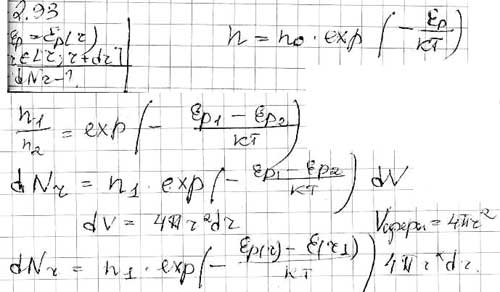 2.93
εp = εp(r)
r ∈ (r; r+dr)
dNr - ?
n = n₀ · exp(- εp/кТ)
n₁/n₂ = exp(- (εp₁ - εp₂)/кТ)
dNr = n₁ · exp(- (εp₁ - εp₂)/кТ) dV
dV = 4πr²dr
Vсферы = 4πr²
dNr = n₁ · exp(- (εp(r) - ε(r₁))/кТ) 4πr²dr.